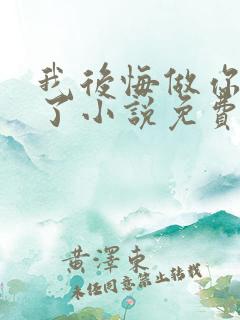 我後悔做你
了小說免費
黃澤東
未经同意禁止转载